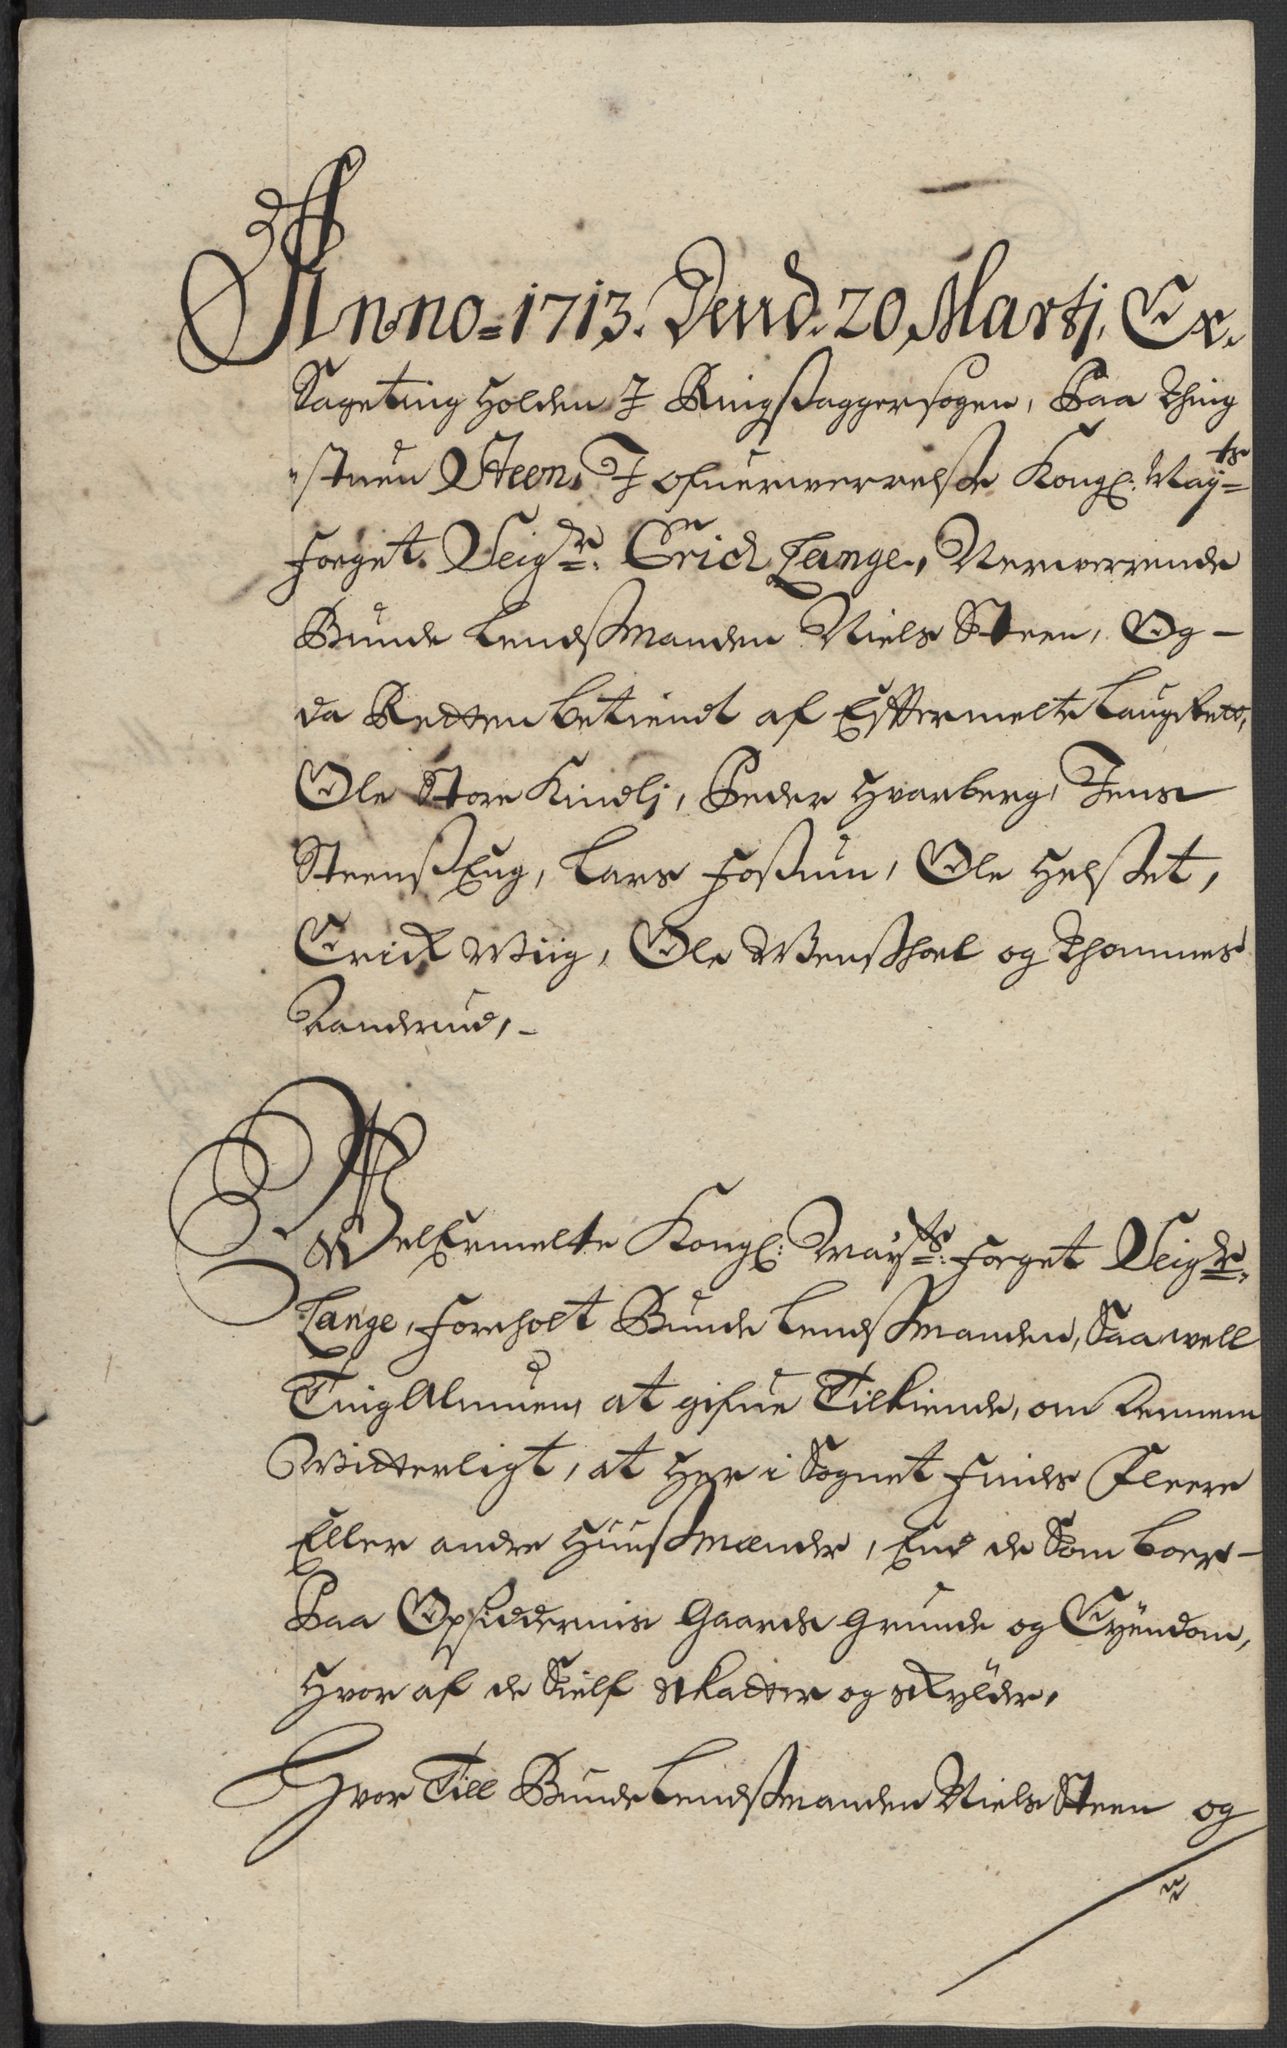 Anno = 1713. Dend. 20 Martj, Er
Sageting Holden J Ringsaggersogen, Paa Thing
stuen Steen, J ofuerwerrelse Kongl: May:ts
Foeget Seigr: Erich Lange, Nerwerrende
Bunde Lendsmanden Niels Steen, Og –
da Retten betient af Efftermelte Laugrett,
Ole Store Kindlj, Peder Hvarberg, Jens
Steens Eng, Lars Fossum, Ole Helset,
Erick Wiig, Ole Wensthoel og Thommes
Randerud, –
WelErmelte Kongl: Mayts: Foeget Seigr:
Lange, Foreholt Bunde Lendsmanden, Saa well
Ting Almuen, at gifue Tilkiende, om dennem
Witterligt, at Her i Sognet Findes Fleere
Eller andre Huusmænder, End de Som boer –
Paa Opsiddernis Gaarde Grunde og Eyendom,
Hvor af de Sielf skatter og skylder,
Hvor Till Bunde Lendsmanden Niels Steen og